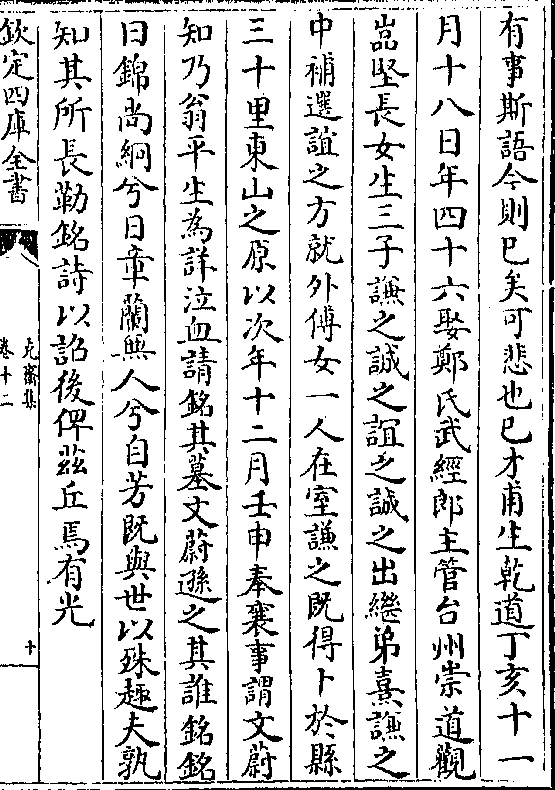 有事斯語今則已矣可悲也已才甫生乾道丁亥十一
月十八日年四十六娶鄭氏武經郎主管台州崇道觀
嵓堅長女生三子謙之誠之誼之誠之出繼弟熹謙之
中補選誼之方就外傅女一人在室謙之既得卜於縣
三十里東山之原以次年十二月壬申奉襄事謂文蔚
知乃翁平生為詳泣血請銘其墓文蔚遜之其誰銘銘
曰錦尚絅兮日章蘭無人兮自芳既與世以殊趣夫孰
知其所長勒銘詩以詔後俾茲丘焉有光
欽定四庫全書
克齋集
卷十二
十